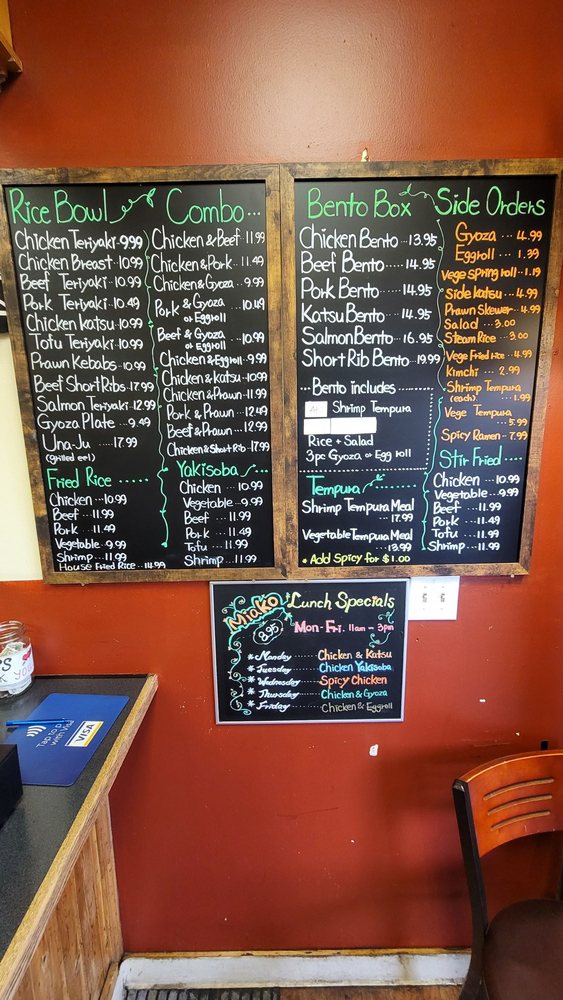 Rice Bowl
Chicken Teriyaki 9.99
Chicken Breast ..10.99
Beef Teriyaki .10.99
Pork Teriyaki .10.49
Chicken katsu .10.99
Tofu Teriyaki .10.99
Prawn Kebabs ..10.99
Beef Short Ribs .17.99
Salmon Teriyaki .12.99
Gyoza Plate ..9.49
Una-Ju ....17.99
(Grilled eel)
Fried Rice .....
Chicken .....10.99
Beef .....11.99
Pork .....11.49
Vegetable ..9.99
Shrimp ...11.99
House Fried Rice ..14.99
Combo...
Chicken & Beef 11.99
Chicken & Pork ..11.49
Chicken & Gyoza ..9.99
Pork & Gyoza
or Eggroll 10.49
Beef & Gyoza
or Eggroll 10.99
Chicken & Eggroll ..9.99
Chicken & katsu .10.99
Chicken & Prawn .11.99
Pork & Prawn ..12.49
Beef & Prawn ..12.99
Chicken & Short Rib .17.99
Yakisoba
Chicken ...10.99
Vegetable ..9.99
Beef ....11.99
Pork ...11.49
Tofu ..11.99
Shrimp ..11.99
Bento Box
Chicken Bento ...13.95
Beef Bento .....14.95
Pork Bento .....14.95
Katsu Bento ....14.95
Salmon Bento ...16.95
Short Rib Bento ..19.99
Bento includes
Shrimp Tempura
Rice + Salad
3pc Gyoza or Egg roll
Tempura
Shrimp Tempura Meal
17.99
Vegetable Tempura Meal
13.99
* Add Spicy for $1.00
Side Orders
Gyoza ....4.99
Eggroll ....1.39
Vege Spring roll .1.19
Side katsu ...4.99
Prawn Skewer ..4.99
Salad ..3.00
Steam Rice ..3.00
Vege Fried rice ..4.99
Kimchi ... 2.99
Shrimp Tempura
(each) ...1.99
Vege Tempura
...5.99
Spicy Ramen ..7.99
Stir Fried....
Chicken ....10.99
Vegetable ..9.99
Beef ...11.99
Pork ...11.49
Tofu ...11.99
Shrimp ..11.99
Miako
8.95
Lunch Specials
Mon - Fri. 11am - 3pm
* Monday ......Chicken & Katsu
* Tuesday ......Chicken Yakisoba
* Wednesday ....Spicy Chicken
* Thursday .....Chicken & Gyoza
* Friday ......Chicken & Eggroll
Tap to p
with Visa
VISA